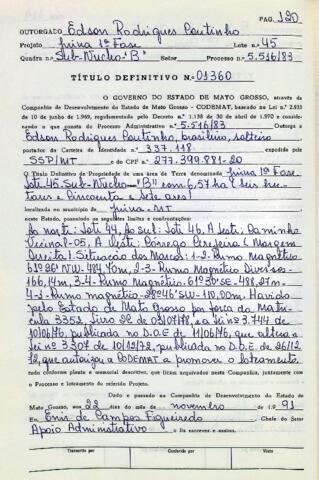 PAG. 120
OUTORGADO Edson Rodrigues Coutinho
Projeto Juina 1ª Fase Lote n.º 45
Quadra n.º Sub-Núcleo "B" Setor Processo n.º 5.516/83
TÍTULO DEFINITIVO N.º 01360
O GOVERNO DO ESTADO DE MATO GROSSO, através da
Companhia de Desenvolvimento do Estado de Mato Grosso - CODEMAT, baseado na Lei n.º 2.933
de 10 de junho de 1969, regulamentada pelo Decreto n.º 1.138 de 30 de abril de 1970 e conside-
rando o que consta do Processo Administrativo n.º 5.516/83 Outorga a
Edson Rodrigues Coutinho, brasileiro, solteiro
portador da Carteira de Identidade n.º 337.118 expedida pela
SSP/MT e do CPF n.º 277.399.881-20
O Título Definitivo de Propriedade de uma área de Terra denominada Juina 1ª Fase
Lote 45 Sub-Núcleo "B" com 6,57 ha (seis hec-
tares e cincoenta e sete ares)
localizada no município de Juina-MT
neste Estado, possuindo os seguintes limites e confrontações:
Ao norte: Lote 44, Ao sul: Lote 46, A leste: Caminho
Vicinal P-05, A Oeste: Córrego Perfeira (Margem
Direita). Situação dos Marcos: 1-2- Rumo Magnético
61º26' NW- 484,70m, 2-3- Rumo Magnético Diversos-
166,14m, 3-4- Rumo Magnético- 61º30' SE- 488,27m-
4-1- Rumo magnético- 28º46' SW- 110,00m. Havido
pelo Estado de Mato Grosso por força da Matri-
cula 3352, livro 2L de 03/07/78, a lei nº 3.744 de
10/06/76, publicada no D.O.E. de 11/06/76, que altera a
lei nº 3307 de 10/12/72, publicada no D.O.E. de 26/12/
72, que autoriza a CODEMAT a promover o loteamento.
tudo conforme planta e memorial descritivo, que ficam arquivados nesta Companhia, juntamente com
o Processo e loteamento do referido Projeto.
Dado e passado na Companhia de Desenvolvimento do Estado de
Mato Grosso, aos 22 dias do mês de novembro de 1.9 91
Eu Enis de Campos Figueiredo Chefe do Setor
Apoio Administrativo o fiz escrever e assino.
Transcrito por Conferido por Visto